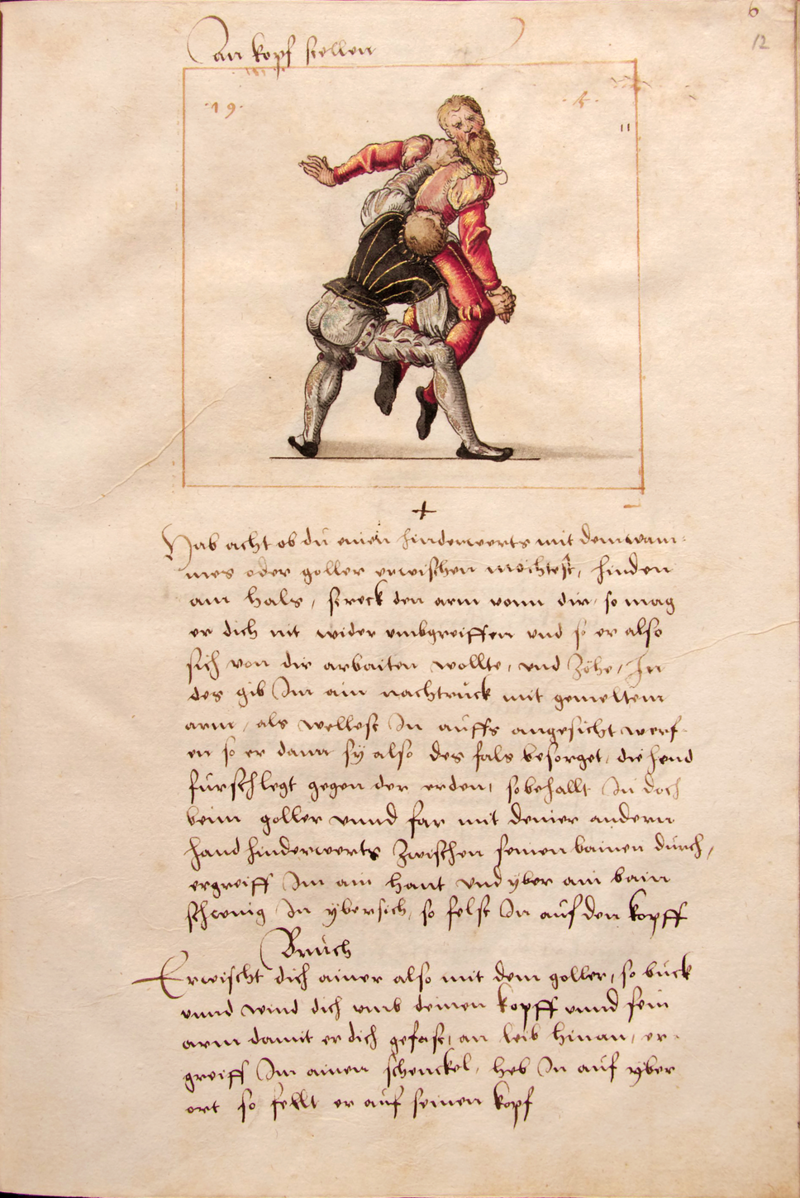 6
12
An kopf stellen
19
4
11
Hab acht ob du einen hinderwerts mit dem wam-
mes oder goller erwischen möchtest, hinden
am hals, streck den arm vonn dir, so mag
er dich nit wider umbgreiffen und so er also
sich von dir arbaiten wollte, und zöhe, In
des gib Im ain nachtruck mit gemeltem
arm, als wellest In auffs angesicht werf-
en so er dann sy also des fals besorget, die hend
fürschlegt gegen der erden, so behallt In doch
beim goller unnd far mit deiner andern
hand hinderwerts zwischen seinen bainen durch,
ergreiff Im ain hant und yber ain bain
schwing In ybersich, so felst In auf den kopff
Bruch
Erwischt dich ainer also mit dem goller, so buck
unnd wind dich umb deinen kopff unnd sein
arm damit er dich gefast, an leib hinan, er-
greiff Im ainen schenckel, heb In auf yber
ort so fellt er auf seinen kopf